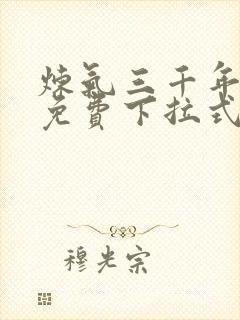 炼氣三千年
免費下拉式
穆光宗